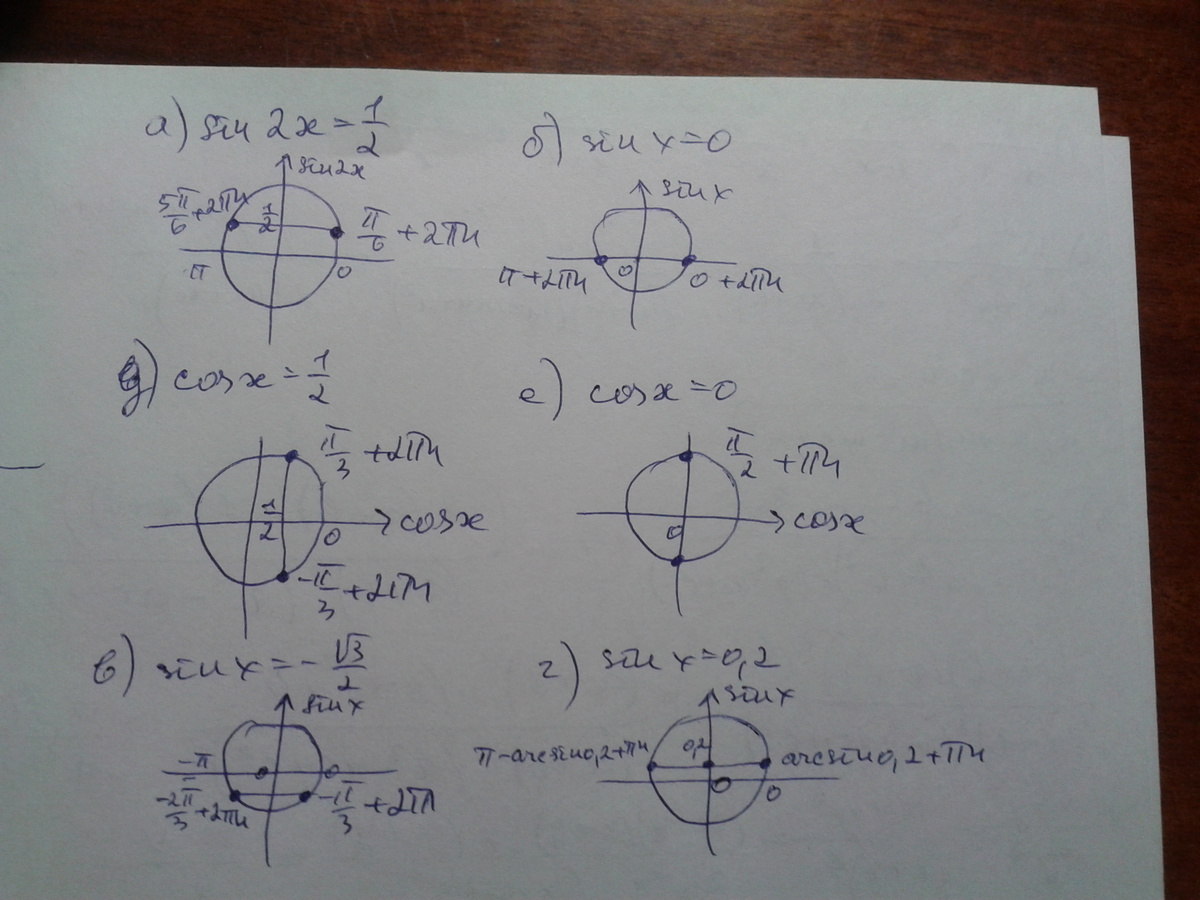 а) sin 2x = 1/2
sin 2x
5π/6 + 2πn
1/2
π/6 + 2πn
π
0
б) sin x = 0
sin x
π + 2πn
0
0 + 2πn
д) cos x = 1/2
π/3 + 2πn
1/2
cos x
0
-π/3 + 2πn
е) cos x = 0
π/2 + πn
cos x
0
в) sin x = - √3/2
sin x
-π
0
0
-2π/3 + 2πn
-π/3 + 2π
г) sin x = 0,2
sin x
π - arcsin 0,2 + πn
0,2
arcsin 0,2 + πn
0
0